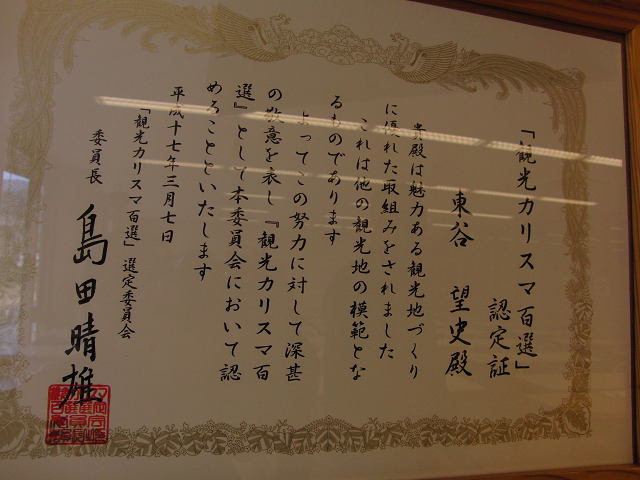 「観光カリスマ百選」
認定証
東谷 望史殿
貴殿は魅力ある観光地づくり
に優れた取組みをされました
これは他の観光地の模範とな
るものであります
よってこの努力に対して深甚
の敬意を表し『観光カリスマ百
選』として本委員会において認
めることといたします
平成十七年三月七日
「観光カリスマ百選」選定委員会
委員長 島田晴雄